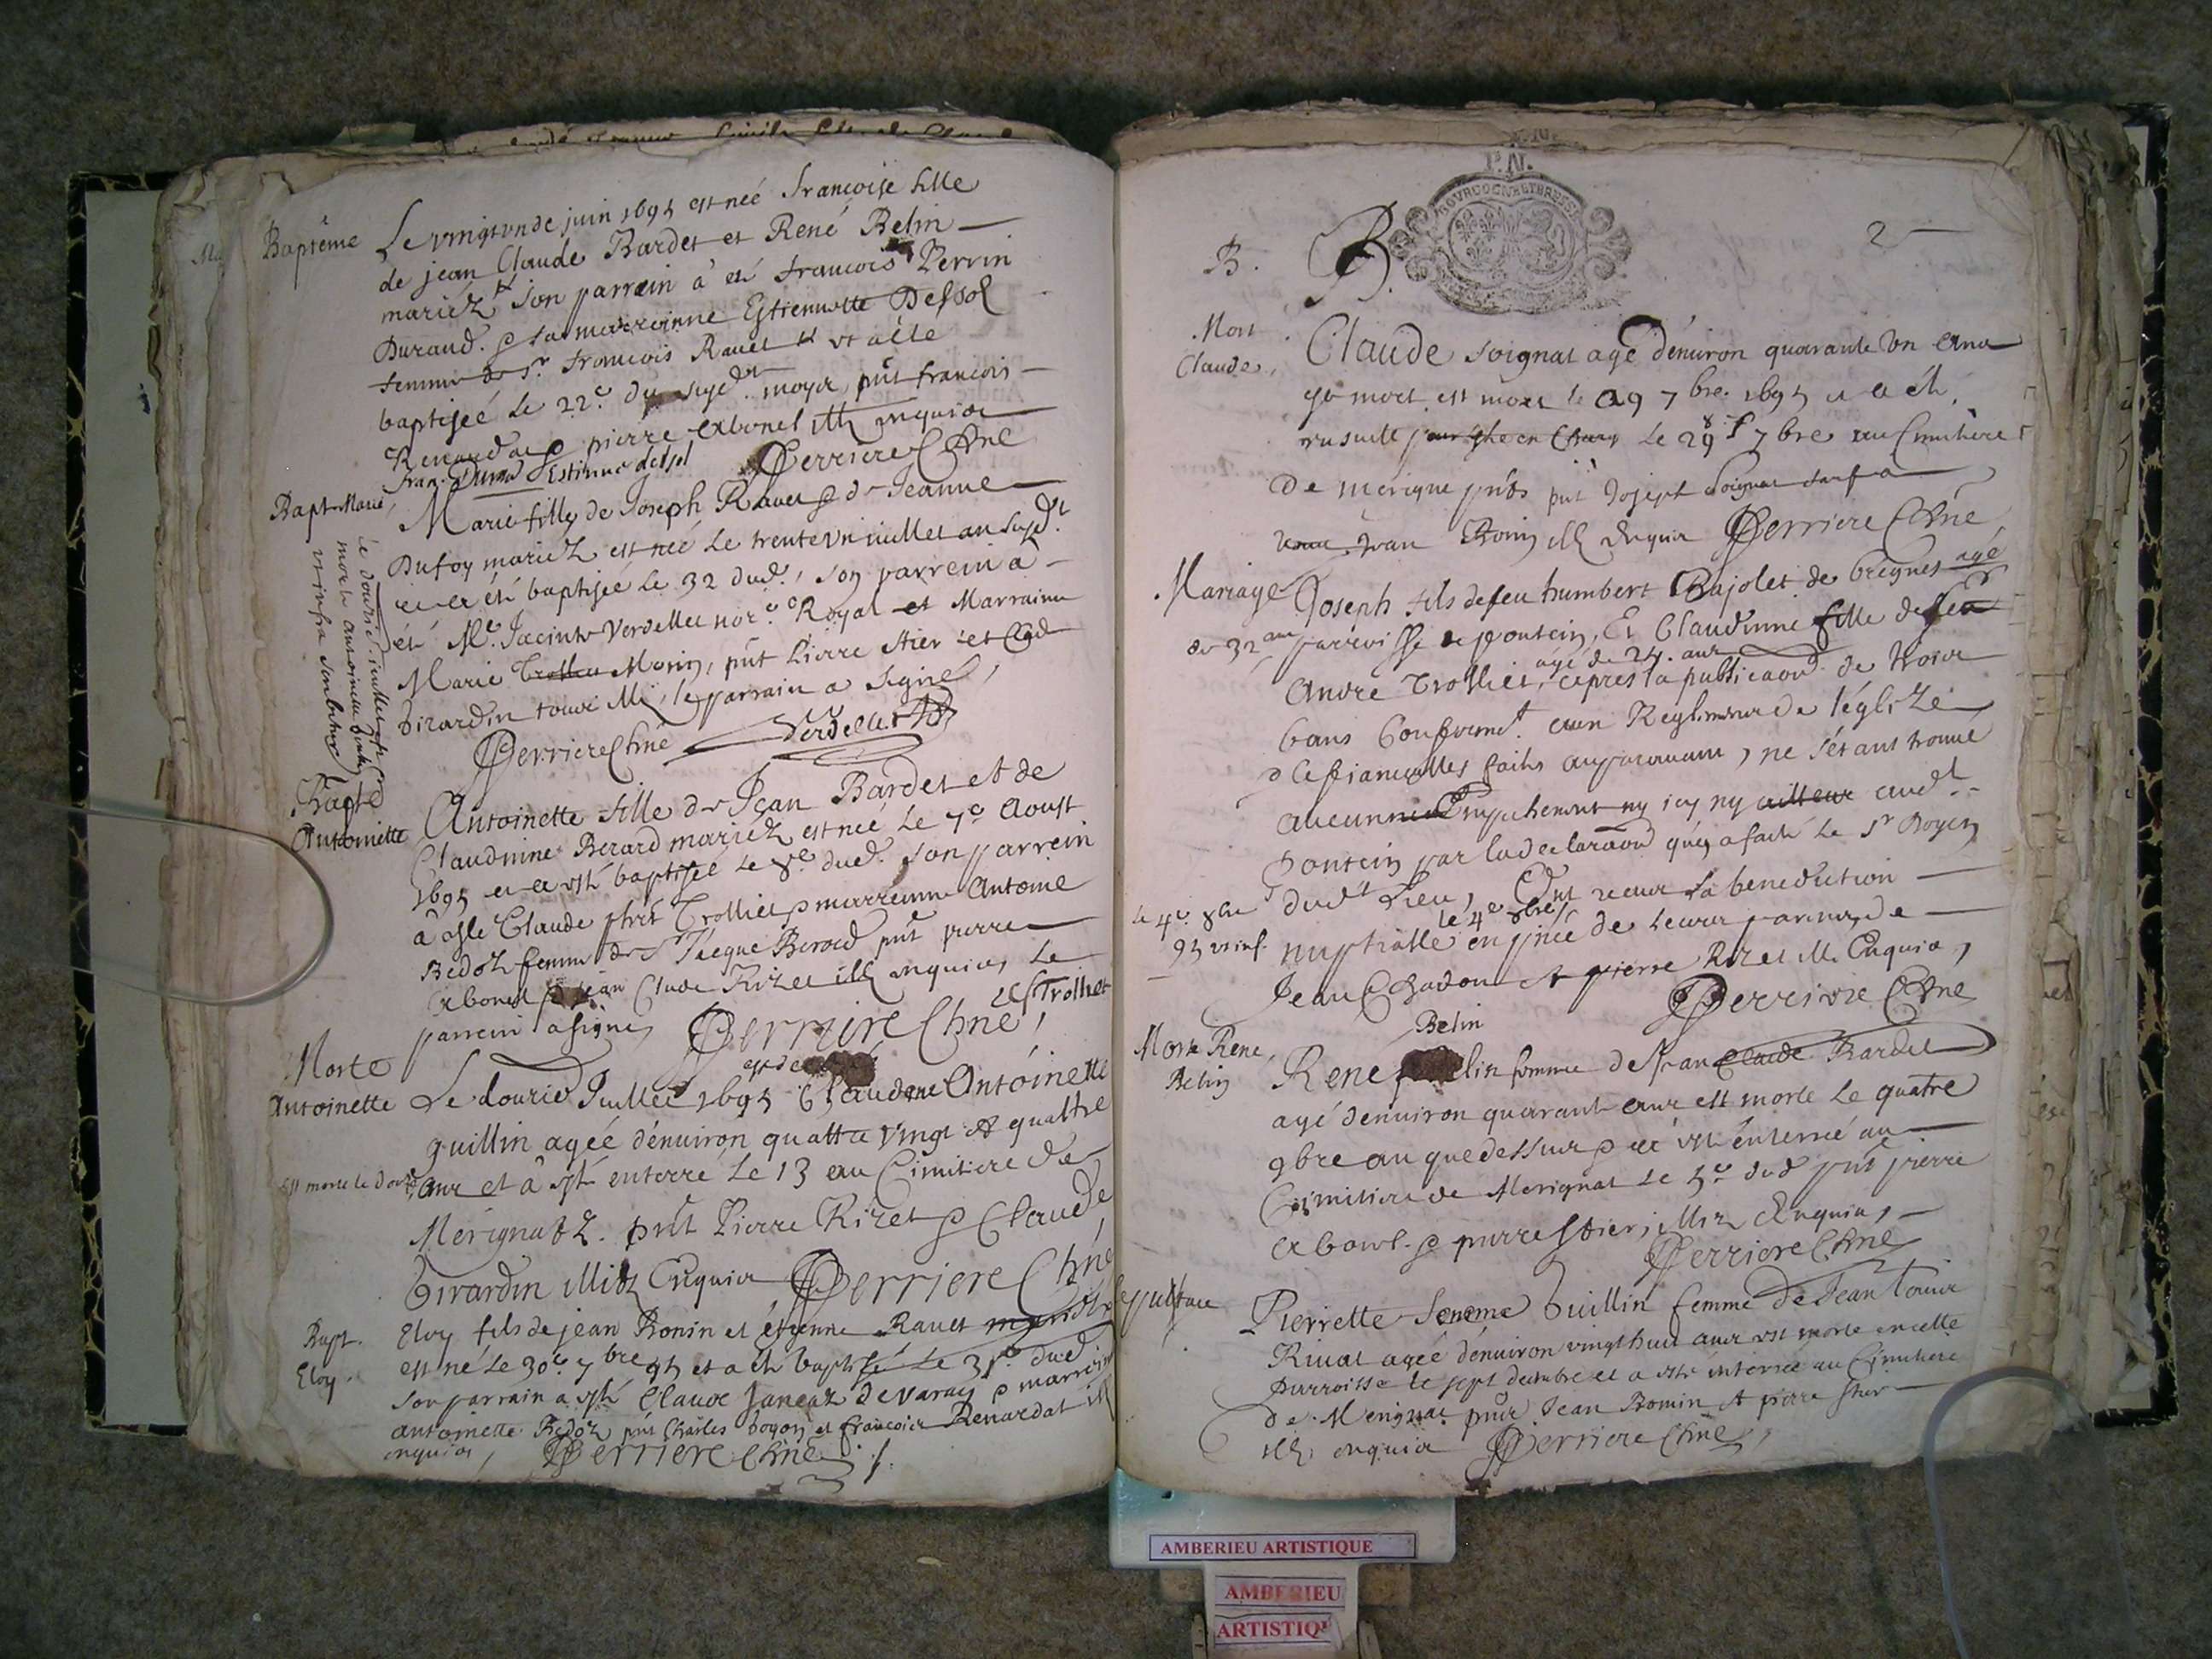 Baptême
Le vingt un de juin 1695 est neé Francoise fille
de jean Claude Bardet et René Belin
mariéz son parrein à eté francois Perrin
Durand. & sa marreinne Estiennette Dessol
femme de Sr francois Rauet et at este
baptiseé le 22e du susd. moys pnt francois
Renardat & pierre Exbonel illz enquis
fran. Durand Estienne dessol Perriere Chne
Bapt Marie,
Marie fille de Joseph Rauet & de Jeanne
Dufoy mariez est neé le trente un iuillet an susdt
et a eté baptiseé le 32 dud., son parrein a
eté Me. Jacinte Verdellet nore Royal et Marraine
Marie Trollier Morin, pnt Pierre Stier et Cld
Girardin tous illi, le parrain a signé,
Perriere Chne Verdellet
Le douzie iuillet
morte antoinette
Bapte
Antoinette
Antoinette fille de Jean Bardet et de
Claudinne Berard mariéz est neé le 7e Aoust
1695 et a esté baptiseé le 8e dud. son parrein
à esté Claude phrt Trolliet & marreinne Antoine
Bedoz femme de Jacque Berard pnt pierre
Exbonel & jean Claude Rizet illz enquis, le
parrein a signé, Perriere Chne, Trolliet
Morte
Antoinette
Le douzie Juillet 1695 Claudine Antoinette
guillin ageé dénuiron quattre vingt et quattre
est morte le douze
ans et à esté enterré le 13 au Cimitiere de
Mérignatz. pnt Pierre Rizet & Claude
Girardin illitz Enquis Perriere Chne
Bapt.
Eloy.
Eloy fils de jean Bonin et étienne Rauet mariés
est né le 30e 7bre 95 et a eté baptisé le 31e dud
son parrain a esté Claude Janeaz de varay & marreine
antoinette Bedoz pnt Charles boyon et francois Renardat ill
enquis, Perriere Chne
P.N.
BOURGOGNE ET BRESSE
2
B. B.
Mort
Claude,
Claude Soignat agé dénuiron quarante un ans
est mort le 29 7bre. 1695 et a eté
ensuelt le 29 7bre au Cimitiere
de merigna pnt Josept Soignat
Jean Bonin illz Enquis Perriere Chne
Mariage
Joseph fils de feu humbert Bajolet de breignes agé
de 32 ans parroisse de pontein, Et Claudinne fille de feu
agé de 24. ans
André Trolliet, apres la publicaon de trois
bans Conformt. aux Reglemens de léglize
& le fiancailles faits auparauant, ne s'étant trouué
aucunne Empechement ny icy ny ailleur aud.
Pontein par la declaraon qu'en a faitte le Sr Doyen
le 4e 8bre
dudt Lieu, Ont receu la benediction
le 4e 8bre
nuptialle en pnce de leurs parens, de
Jean Chadon et pierre Rizet ill. Enquis,
Perriere Chne
Belin
Morte René,
Belin
René Belin femme de jean Claude Bardet
agé denuiron quarante ans est morte le quatre
9bre an que dessus & a esté énterreé au
Cimitiere de Merignat le 5e dud pnt pierre
Exbonel. & pierre Stier, illiz Enquis,
Perriere Chne
sepulture
Pierrette Guillin femme de Jean Louis
Riuat ageé dénuiron vingt huit ans est morte en cette
Parroisse le sept decembre et a esté énterreé au Cimitiere
de Merignat pnt Jean Bonin et pierre Stier
illz enquis Perriere Chne,
AMBERIEU ARTISTIQUE
AMBERIEU
ARTISTIQU